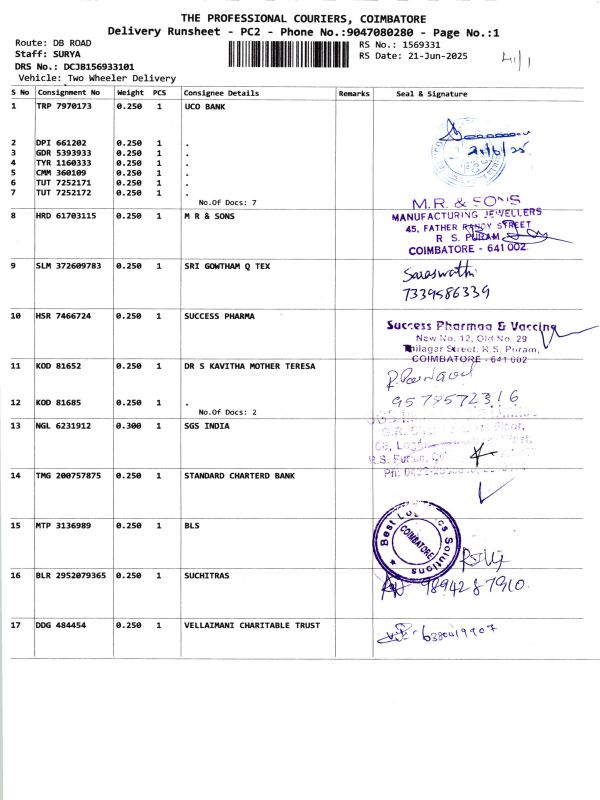 THE PROFESSIONAL COURIERS, COIMBATORE
Delivery Runsheet - PC2 - Phone No.:9047080280 - Page No.:1
Route: DB ROAD
Staff: SURYA
DRS No.: DCJB156933101
Vehicle: Two Wheeler Delivery
RS No.: 1569331
RS Date: 21-Jun-2025
S No Consignment No Weight PCS Consignee Details Remarks Seal & Signature
1 TRP 7970173 0.250 1 UCO BANK
2 DPI 661202 0.250 1 .
3 GDR 5393933 0.250 1 .
4 TYR 1160333 0.250 1 .
5 CMM 360109 0.250 1 .
6 TUT 7252171 0.250 1 .
7 TUT 7252172 0.250 1 .
No.Of Docs: 7
8 HRD 61703115 0.250 1 M R & SONS
M.R. & SONS
MANUFACTURING JEWELLERS
45, FATHER RANDY STREET
R S. PURAM
COIMBATORE - 641 002.
9 SLM 372609783 0.250 1 SRI GOWTHAM Q TEX
Saraswathi
7339586339
10 HSR 7466724 0.250 1 SUCCESS PHARMA
Success Pharmaa & Vaccine
New No. 12, Old No. 29
Thilagar Street, R.S. Puram,
COIMBATORE - 641 002
11 KOD 81652 0.250 1 DR S KAVITHA MOTHER TERESA
12 KOD 81685 0.250 1 .
No.Of Docs: 2
9578572316
13 NGL 6231912 0.300 1 SGS INDIA
R.S. Puram,
14 TMG 200757875 0.250 1 STANDARD CHARTERD BANK
15 MTP 3136989 0.250 1 BLS
Best Logistics Solutions
COIMBATORE
16 BLR 2952079365 0.250 1 SUCHITRAS
9894287910.
17 DDG 484454 0.250 1 VELLAIMANI CHARITABLE TRUST
6380019907